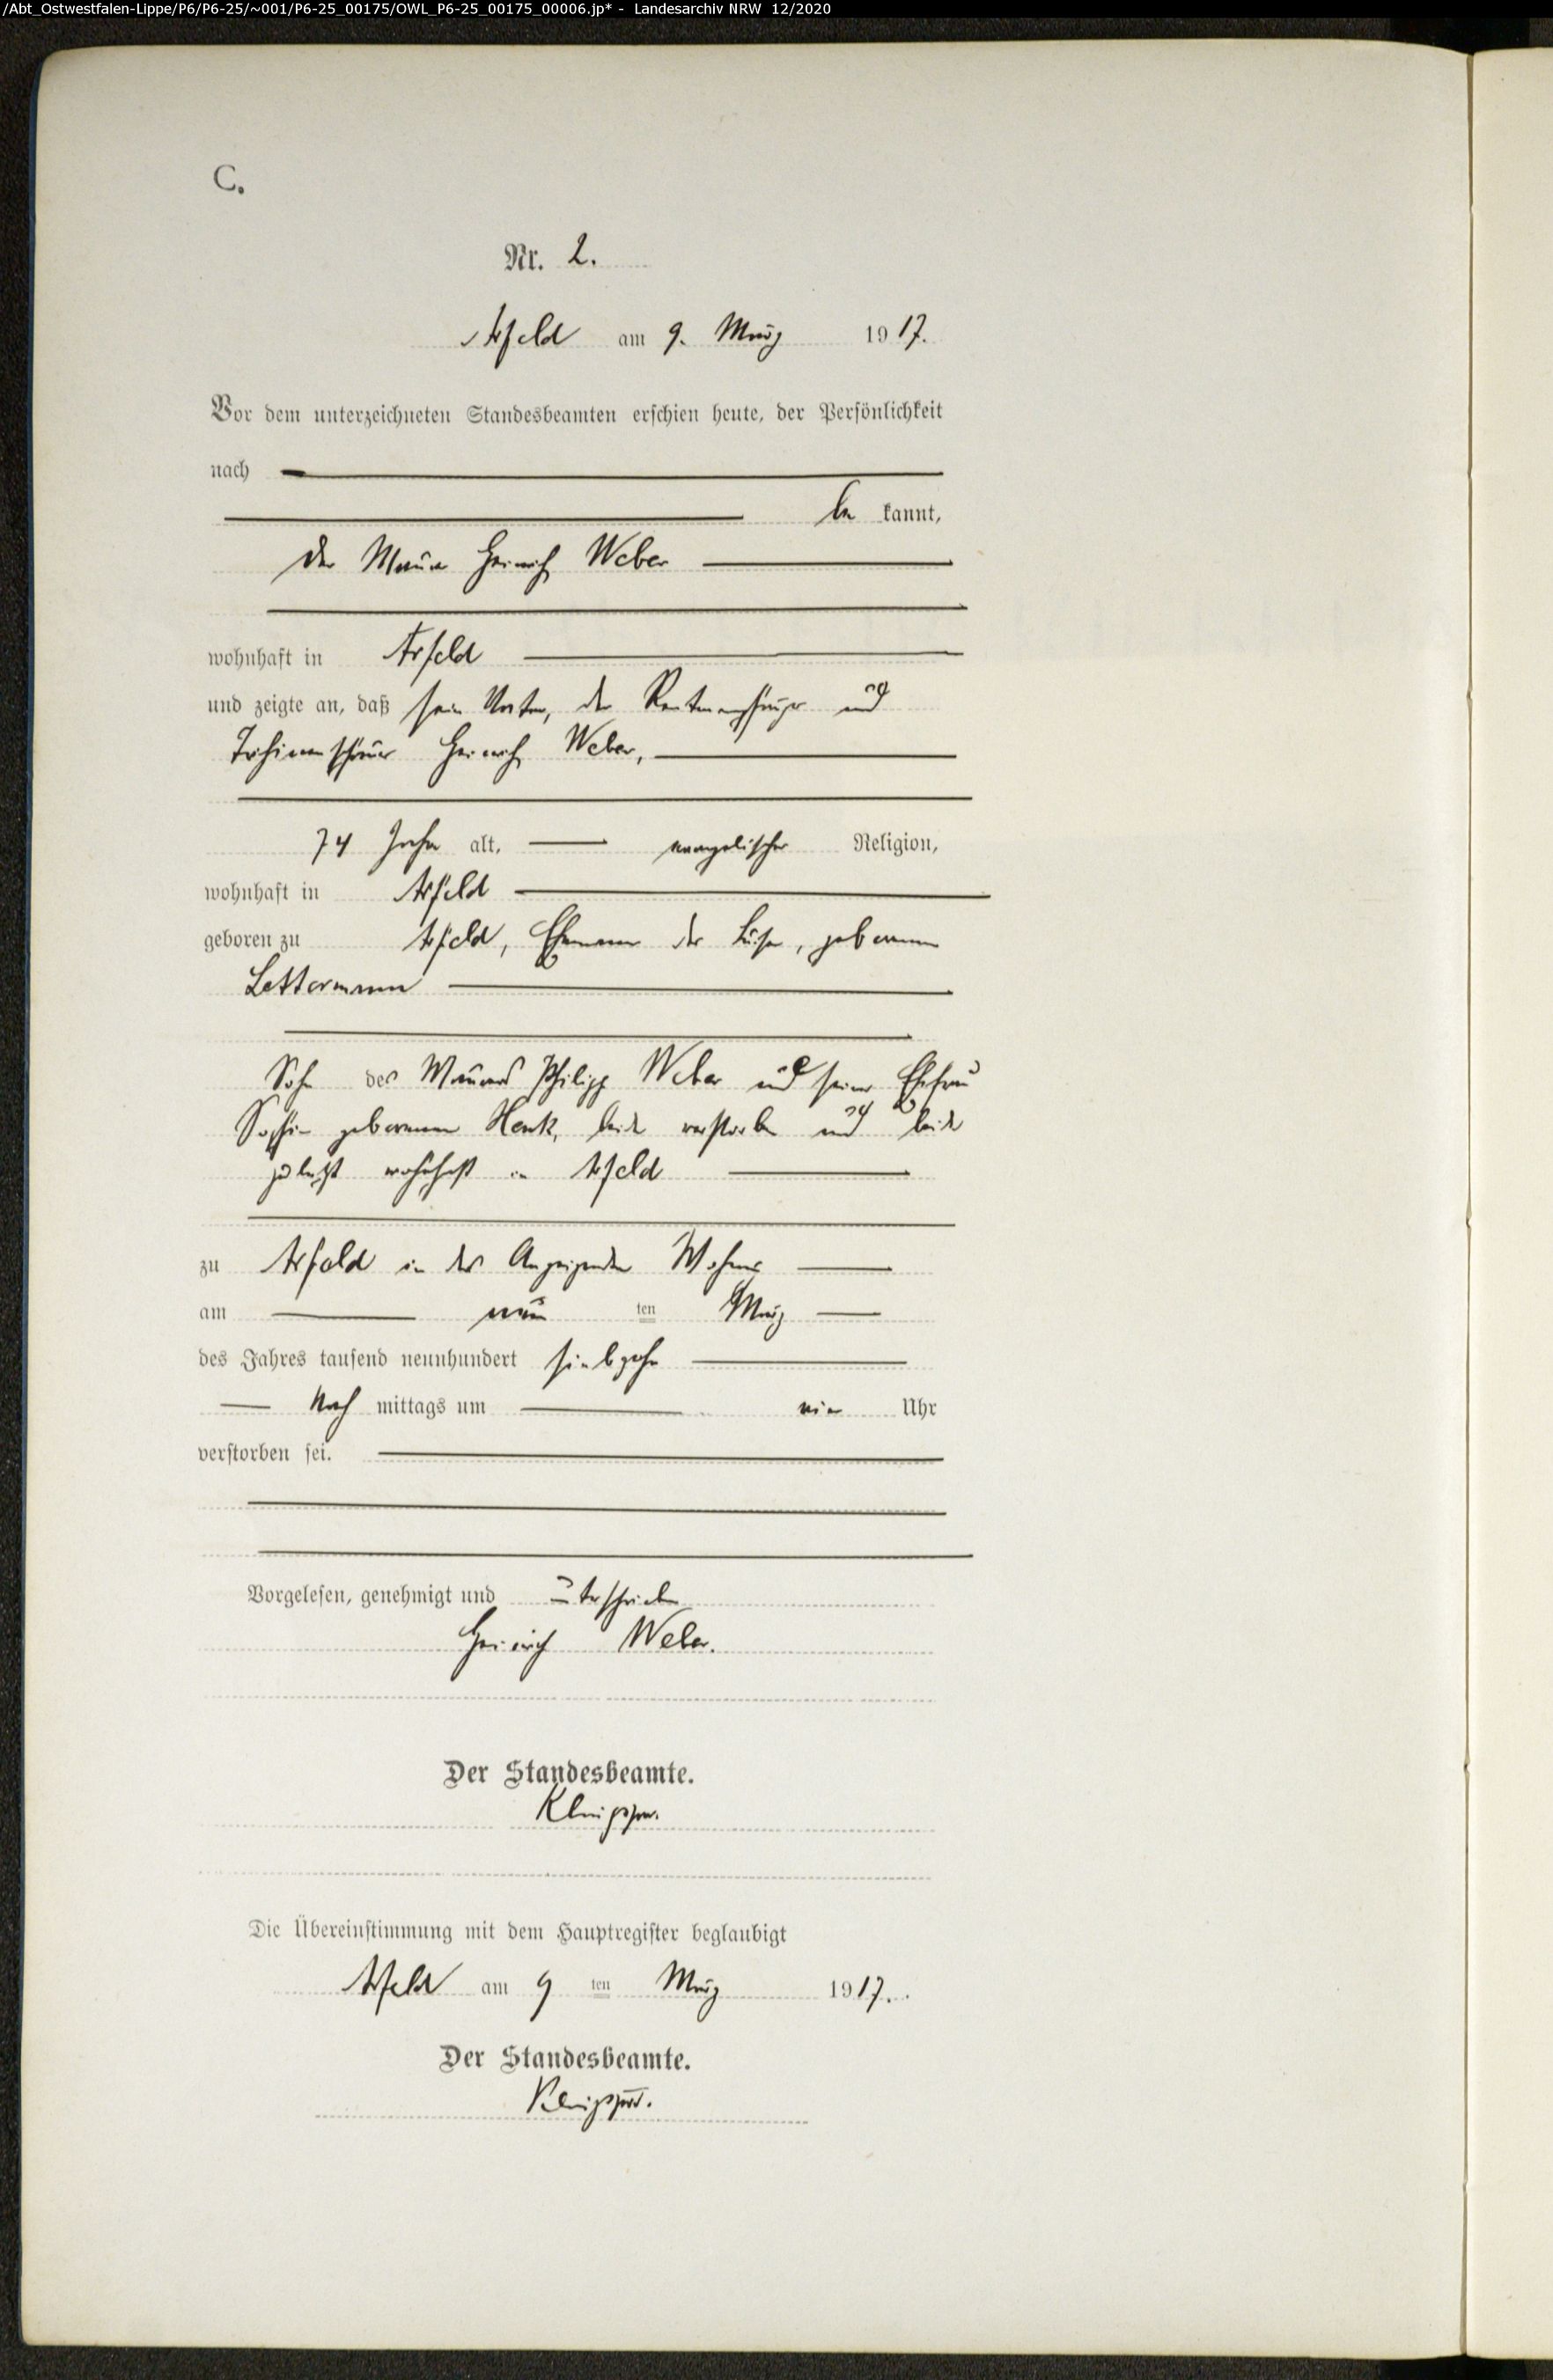 /Abt_Ostwestfalen-Lippe/P6/P6-25/~001/P6-25_00175/OWL_P6-25_00175_00006.jp* - Landesarchiv NRW 12/2020
C.
Nr. 2.
Arfeld am 9. März 1917.
Vor dem unterzeichneten Standesbeamten erschien heute, der Persönlichkeit
nach
be kannt,
der Maurer Heinrich Weber
wohnhaft in Arfeld
und zeigte an, daß sein Vater, der Rentenempfänger und
Trichinenschauer Heinrich Weber,
74 Jahre alt, evangelischer Religion,
wohnhaft in Arfeld
geboren zu Arfeld, Ehemann der Luise, geborenen
Lettermann
Sohn des Maurers Philipp Weber und seiner Ehefrau
Sophie geborenen Henk, beide verstorben und beide
zuletzt wohnhaft in Arfeld
zu Arfeld in des Anzeigenden Wohnung
am neun ten März
des Jahres tausend neunhundert siebzehn
Nach mittags um vier Uhr
verstorben sei.
Vorgelesen, genehmigt und unterschrieben
Heinrich Weber.
Der Standesbeamte.
Die Übereinstimmung mit dem Hauptregister beglaubigt
Arfeld am 9 ten März 1917.
Der Standesbeamte.